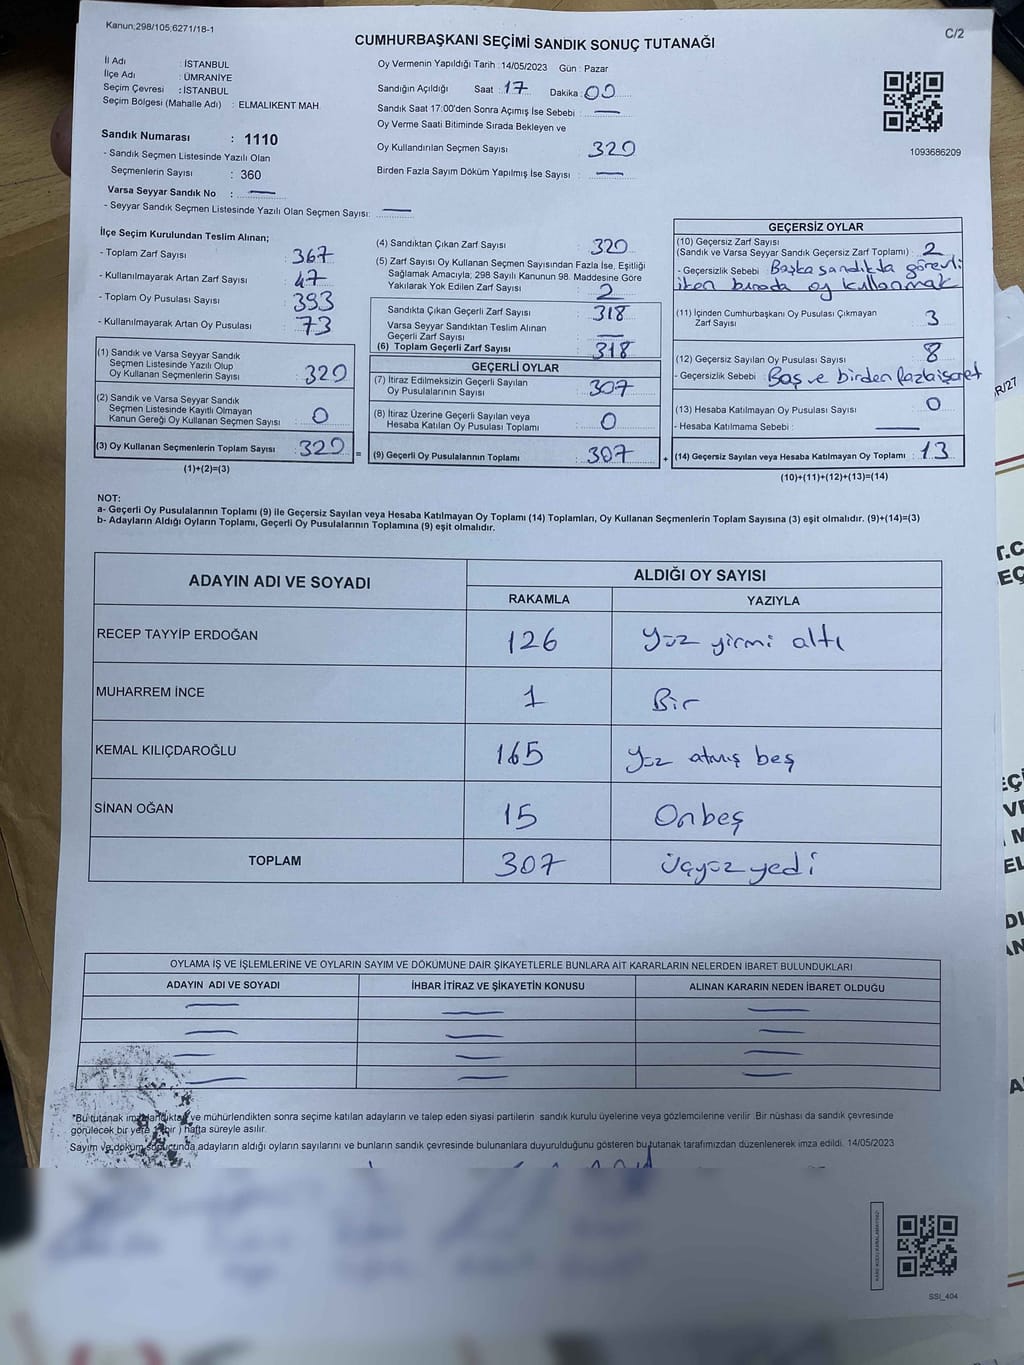 Kanun;298/105;6271/18-1
C/2
CUMHURBAŞKANI SEÇİMİ SANDIK SONUÇ TUTANAĞI
İl Adı : İSTANBUL
İlçe Adı : ÜMRANİYE
Seçim Çevresi : İSTANBUL
Seçim Bölgesi (Mahalle Adı) : ELMALIKENT MAH.
Sandık Numarası : 1110
- Sandık Seçmen Listesinde Yazılı Olan
Seçmenlerin Sayısı : 360
Varsa Seyyar Sandık No : —
- Seyyar Sandık Seçmen Listesinde Yazılı Olan Seçmen Sayısı: —
Oy Vermenin Yapıldığı Tarih : 14/05/2023 Gün : Pazar
Sandığın Açıldığı Saat : 17 Dakika : 00
Sandık Saat 17:00'den Sonra Açımış İse Sebebi : —
Oy Verme Saati Bitiminde Sırada Bekleyen ve
Oy Kullandırılan Seçmen Sayısı : 320
Birden Fazla Sayım Döküm Yapılmış İse Sayısı : —
1093686209
İlçe Seçim Kurulundan Teslim Alınan;
- Toplam Zarf Sayısı : 367
- Kullanılmayarak Artan Zarf Sayısı : 47
- Toplam Oy Pusulası Sayısı : 393
- Kullanılmayarak Artan Oy Pusulası : 73
(1) Sandık ve Varsa Seyyar Sandık
Seçmen Listesinde Yazılı Olup
Oy Kullanan Seçmenlerin Sayısı : 320
(2) Sandık ve Varsa Seyyar Sandık
Seçmen Listesinde Kayıtlı Olmayan
Kanun Gereği Oy Kullanan Seçmen Sayısı : 0
(3) Oy Kullanan Seçmenlerin Toplam Sayısı : 320 =
(1)+(2)=(3)
(4) Sandıktan Çıkan Zarf Sayısı : 320
(5) Zarf Sayısı Oy Kullanan Seçmen Sayısından Fazla İse, Eşitliği
Sağlamak Amacıyla; 298 Sayılı Kanunun 98. Maddesine Göre
Yakılarak Yok Edilen Zarf Sayısı : 2
Sandıkta Çıkan Geçerli Zarf Sayısı : 318
Varsa Seyyar Sandıktan Teslim Alınan
Geçerli Zarf Sayısı : —
(6) Toplam Geçerli Zarf Sayısı : 318
GEÇERLİ OYLAR
(7) İtiraz Edilmeksizin Geçerli Sayılan
Oy Pusulalarının Sayısı : 307
(8) İtiraz Üzerine Geçerli Sayılan veya
Hesaba Katılan Oy Pusulası Toplamı : 0
(9) Geçerli Oy Pusulalarının Toplamı : 307 +
GEÇERSİZ OYLAR
(10) Geçersiz Zarf Sayısı
(Sandık ve Varsa Seyyar Sandık Geçersiz Zarf Toplamı) : 2
- Geçersizlik Sebebi : Başka sandıkta görevli
iken burada oy kullanmak
(11) İçinden Cumhurbaşkanı Oy Pusulası Çıkmayan
Zarf Sayısı : 3
(12) Geçersiz Sayılan Oy Pusulası Sayısı : 8
- Geçersizlik Sebebi : Boş ve birden fazla işaret
(13) Hesaba Katılmayan Oy Pusulası Sayısı : 0
- Hesaba Katılmama Sebebi : —
(14) Geçersiz Sayılan veya Hesaba Katılmayan Oy Toplamı : 13
(10)+(11)+(12)+(13)=(14)
NOT:
a- Geçerli Oy Pusulalarının Toplamı (9) ile Geçersiz Sayılan veya Hesaba Katılmayan Oy Toplamı (14) Toplamları, Oy Kullanan Seçmenlerin Toplam Sayısına (3) eşit olmalıdır. (9)+(14)=(3)
b- Adayların Aldığı Oyların Toplamı, Geçerli Oy Pusulalarının Toplamına (9) eşit olmalıdır.
ADAYIN ADI VE SOYADI
ALDIĞI OY SAYISI
RAKAMLA YAZIYLA
RECEP TAYYİP ERDOĞAN 126 Yüz yirmi altı
MUHARREM İNCE 1 Bir
KEMAL KILIÇDAROĞLU 165 Yüz atmış beş
SİNAN OĞAN 15 Onbeş
TOPLAM 307 Üçyüz yedi
OYLAMA İŞ VE İŞLEMLERİNE VE OYLARIN SAYIM VE DÖKÜMÜNE DAİR ŞİKAYETLERLE BUNLARA AİT KARARLARIN NELERDEN İBARET BULUNDUKLARI
ADAYIN ADI VE SOYADI İHBAR İTİRAZ VE ŞİKAYETİN KONUSU ALINAN KARARIN NEDEN İBARET OLDUĞU
— — —
— — —
— — —
— — —
ve mühürlendikten sonra seçime katılan adayların ve talep eden siyasi partilerin sandık kurulu üyelerine veya gözlemcilerine verilir. Bir nüshası da sandık çevresinde
görülecek bir yere hafta süreyle asılır.
Sayım adayların aldığı oyların sayılarını ve bunların sandık çevresinde bulunanlara duyurulduğunu gösteren bu tutanak tarafımızdan düzenlenerek imza edildi. 14/05/2023
SSİ_404